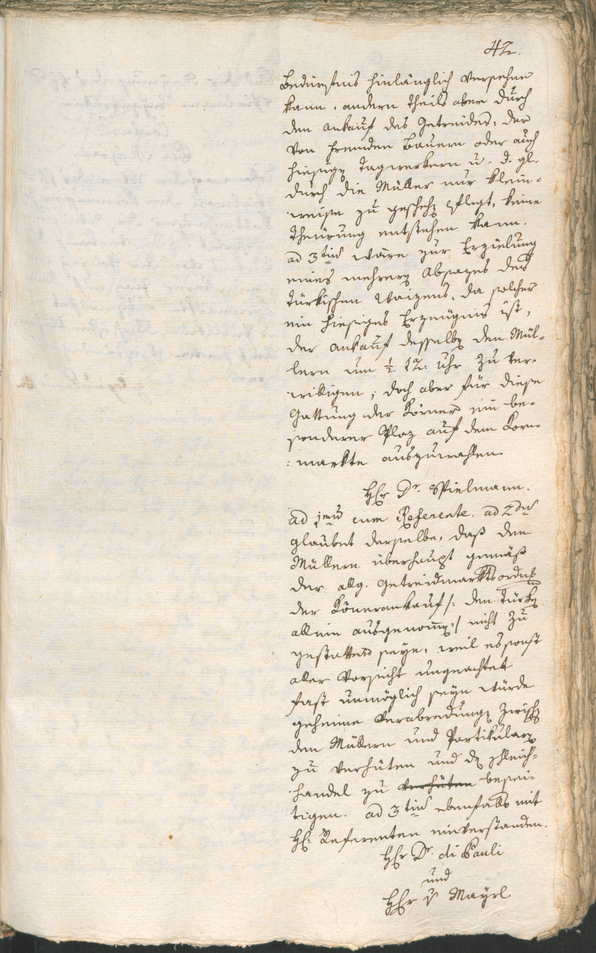 42.
Bedürfnis hinlänglich versehen
kann, andern Theils aber durch
den Ankauf des Getreides, der
von fremden Bauern oder auch
hiesigen Tagwerkern u. d. gl.
durch die Müller nur klein-
weise zu geschehen pflegt, keine
Theurung entstehen kann.
ad 3tium wäre zur Erzielung
eines mehrern Absazes des
Türkischen Waizens, da solcher
ein hiesiges Erzeugnis ist,
der Ankauf desselben den Mül-
lern um ½ 12 Uhr zu ver-
willigen; doch aber für diese
Gattung der Körner ein be-
sonderer Plaz auf dem Korn-
markte auszuwählen
Hr Dr. Spielmann.
ad 1mum cum Referente. ad 2dum
glaubet derselbe, daß den
Müllern überhaupt gemäß
der allg. Getreidmarktsordnung
der Körnerankauf /: den Türken
allein ausgenommen :/ nicht zu
gestatten seye, weil es sonst
aller Vorsicht ungeachtet
fast unmöglich seyn würde
geheime Verabredungen zwischen
den Müllern und Partikularen
zu verhüten und den Schleich-
handel zu verhüten besei-
tigen. ad 3tium ebenfalls mit
H: Referenten einverstanden.
Hr Dr. di Pauli
und
Hr v Mayrl